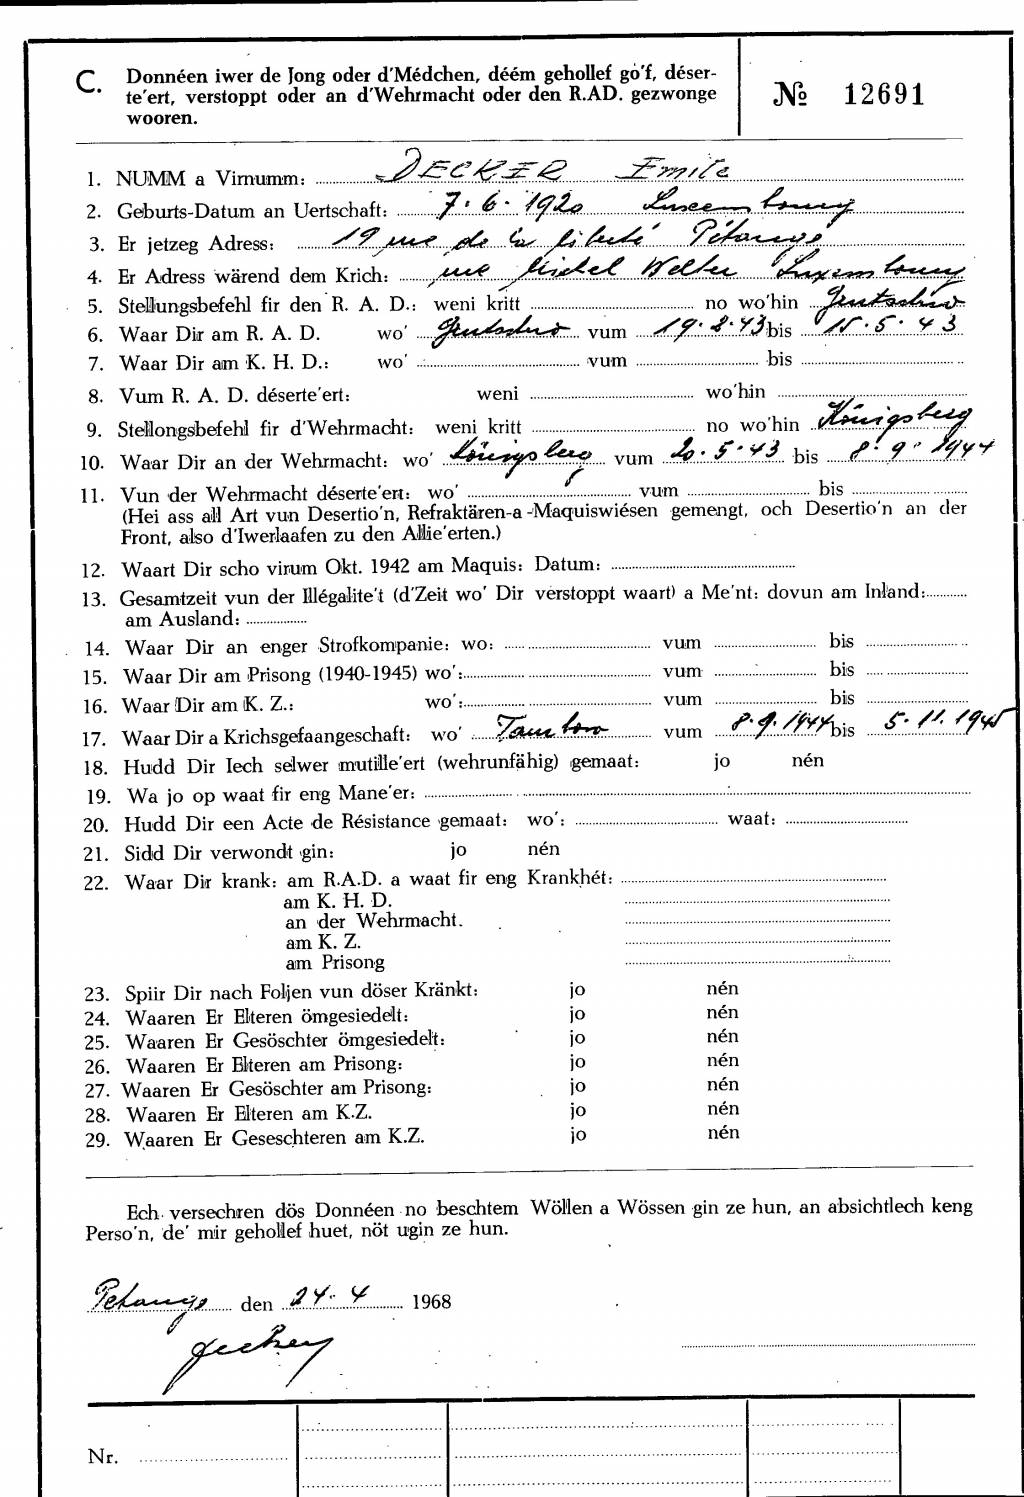 C. Donnéen iwer de Jong oder d'Médchen, déém gehollef go'f, déser-
te'ert, verstoppt oder an d'Wehrmacht oder den R.AD. gezwonge
wooren.
№ 12691
1. NUMM a Virnumm: DECKER Emile
2. Geburts-Datum an Uertschaft: 7.6.1920 Luxembourg
3. Er jetzeg Adress: 19 rue de la liberté Pétange
4. Er Adress wärend dem Krich: rue Michel Welter Luxembourg
5. Stellungsbefehl fir den R. A. D.: weni kritt no wo'hin
6. Waar Dir am R. A. D. wo' vum 19.2.43 bis 15.5.43
7. Waar Dir am K. H. D.: wo' vum bis
8. Vum R. A. D. déserte'ert: weni wo'hin
9. Stellongsbefehl fir d'Wehrmacht: weni kritt no wo'hin Königsberg
10. Waar Dir an der Wehrmacht: wo' Königsberg vum 20.5.43 bis 8.9.1944
11. Vun der Wehrmacht déserte'ert: wo' vum bis
(Hei ass all Art vun Desertio'n, Refraktären-a-Maquiswiésen gemengt, och Desertio'n an der
Front, also d'Iwerlaafen zu den Allie'erten.)
12. Waart Dir scho virum Okt. 1942 am Maquis: Datum:
13. Gesamtzeit vun der Illégalite't (d'Zeit wo' Dir verstoppt waart) a Me'nt: dovun am Inland:
am Ausland:
14. Waar Dir an enger Strofkompanie: wo: vum bis
15. Waar Dir am Prisong (1940-1945) wo': vum bis
16. Waar Dir am K. Z.: wo': vum bis
17. Waar Dir a Krichsgefaangeschaft: wo' Tambow vum 8.9.1944 bis 5.11.1945
18. Hudd Dir Iech selwer mutille'ert (wehrunfähig) gemaat: jo nén
19. Wa jo op waat fir eng Mane'er:
20. Hudd Dir een Acte de Résistance gemaat: wo': waat:
21. Sidd Dir verwondt gin: jo nén
22. Waar Dir krank: am R.A.D. a waat fir eng Krankhét:
am K. H. D.
an der Wehrmacht.
am K. Z.
am Prisong
23. Spiir Dir nach Foljen vun döser Kränkt: jo nén
24. Waaren Er Elteren ömgesiedelt: jo nén
25. Waaren Er Gesöschter ömgesiedelt: jo nén
26. Waaren Er Elteren am Prisong: jo nén
27. Waaren Er Gesöschter am Prisong: jo nén
28. Waaren Er Elteren am K.Z. jo nén
29. Waaren Er Geseschteren am K.Z. jo nén
Ech versechren dös Donnéen no beschtem Wöllen a Wössen gin ze hun, an absichtlech keng
Perso'n, de' mir gehollef huet, nöt ugin ze hun.
Pétange den 24.4 1968
Nr.